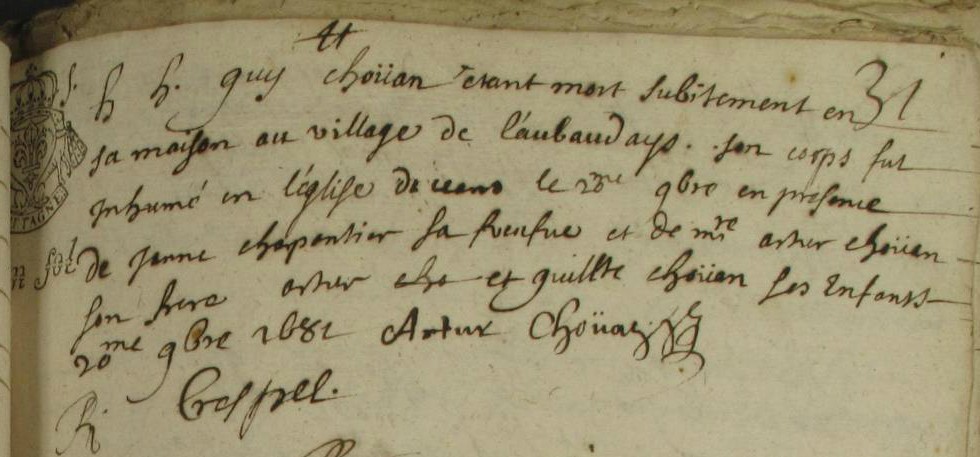 h h. guy choüan etant mort subitement en 31
sa maison au village de l'aubaudays. son corps fut
Inhumé en l'église de ceans le 20me 9bre en presence
de janne charpentier sa veufve et de mre artur choüan
son frere artur cho et guillte choüan ses Enfants
20me 9bre 1681 Artur Choüan
Crespel.